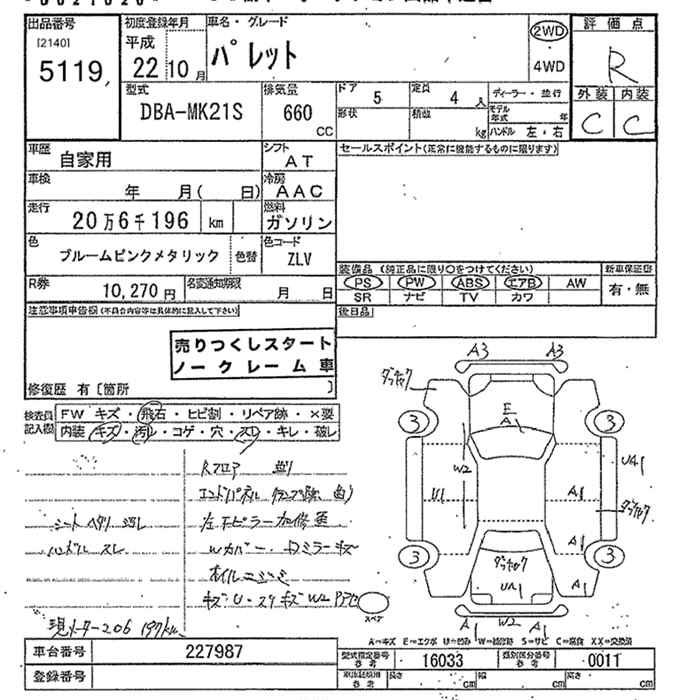 出品番号 初度登録年月 車名・グレード 2WD 評価点
[2140] 平成 パレット R
5119 22 10月 4WD 外装 内装
型式 排気量 ドア 5 定員 4人 ディーラー・並行 C C
DBA-MK21S 660 CC 形状 積数 kg モデル年式 年 ハンドル 左・右
車歴 自家用 シフト AT セールスポイント(正常に機能するものに限ります)
車検 年 月( 日) 冷房 AAC
走行 20万6千196 km 燃料 ガソリン
色 ブルームピンクメタリック 色替 色コード ZLV
装備品 (純正品に限り○をつけてください) 新車保証書
R券 10,270円 名変通知期限 月 日 PS PW ABS エアB AW 有・無
SR ナビ TV カワ
注意事項申告欄(不具合内容等は具体的に記入して下さい) 後日品
売りつくしスタート
ノークレーム車
修復歴 有〔箇所 〕
検査員記入欄 FW キズ・飛石・ヒビ割・リペア跡・×要
内装 キズ・汚れ・コゲ・穴・スレ・キレ・破レ
A3 A3
E
A1
3 3
W2
U1 A1 UA1
A1
3 3
UA1 A1
A1 W2 A1
Rフロア 曲り
シート ヘタリ 汚レ
ハンドル スレ
Wカバー・Dミラーキズ
オイルニジミ
スペア
現メーター206197km
A=キズ E=エクボ U=凹み W=補修跡 S=サビ C=腐食 XX=交換済
車台番号 227987 型式指定番号 参考 16033 類別区分番号 参考 0011
登録番号 参考 長さ cm 幅 cm 高さ cm